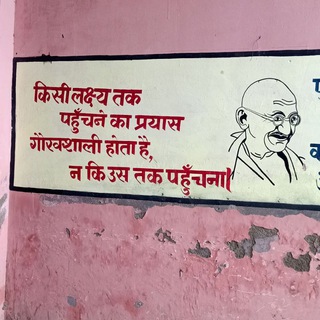 किसी लक्ष्य तक
पहुँचने का प्रयास
गौरवशाली होता है,
न कि उस तक पहुँचना।